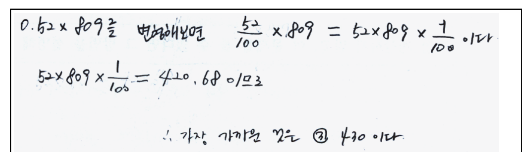 0.52×809를 변형해보면 52/100 × 809 = 52×809×1/100 이다
52×809×1/100 = 420.68 이므로
∴ 가장 가까운 것은 ③ 430 이다